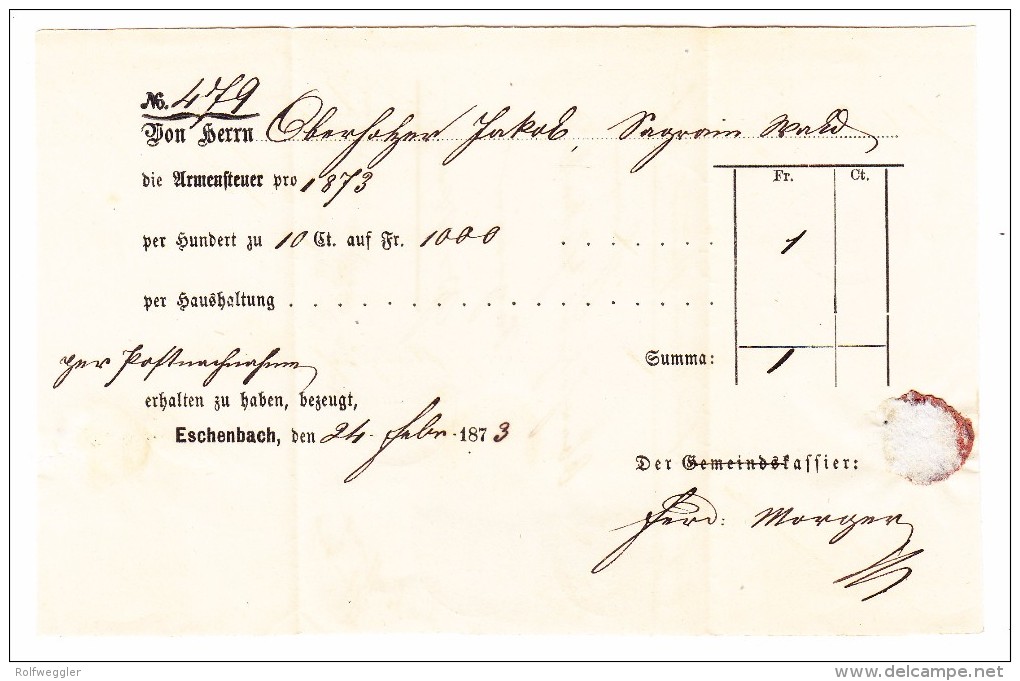 No. 479
Von Herrn Oberholzer Jakob, Sagrain Wald
Fr. Ct.
die Armensteuer pro 1873
per Hundert zu 10 Ct. auf Fr. 1000 . . . . . . . 1
per Haushaltung . . . . . . . . . . . . . . . . . .
per Postnachnahme
Summa: 1
erhalten zu haben, bezeugt,
Eschenbach, den 24. Febr. 1873
Der Gemeindskassier:
Ferd. Morger
Rolfweggler
www.delcampe.net